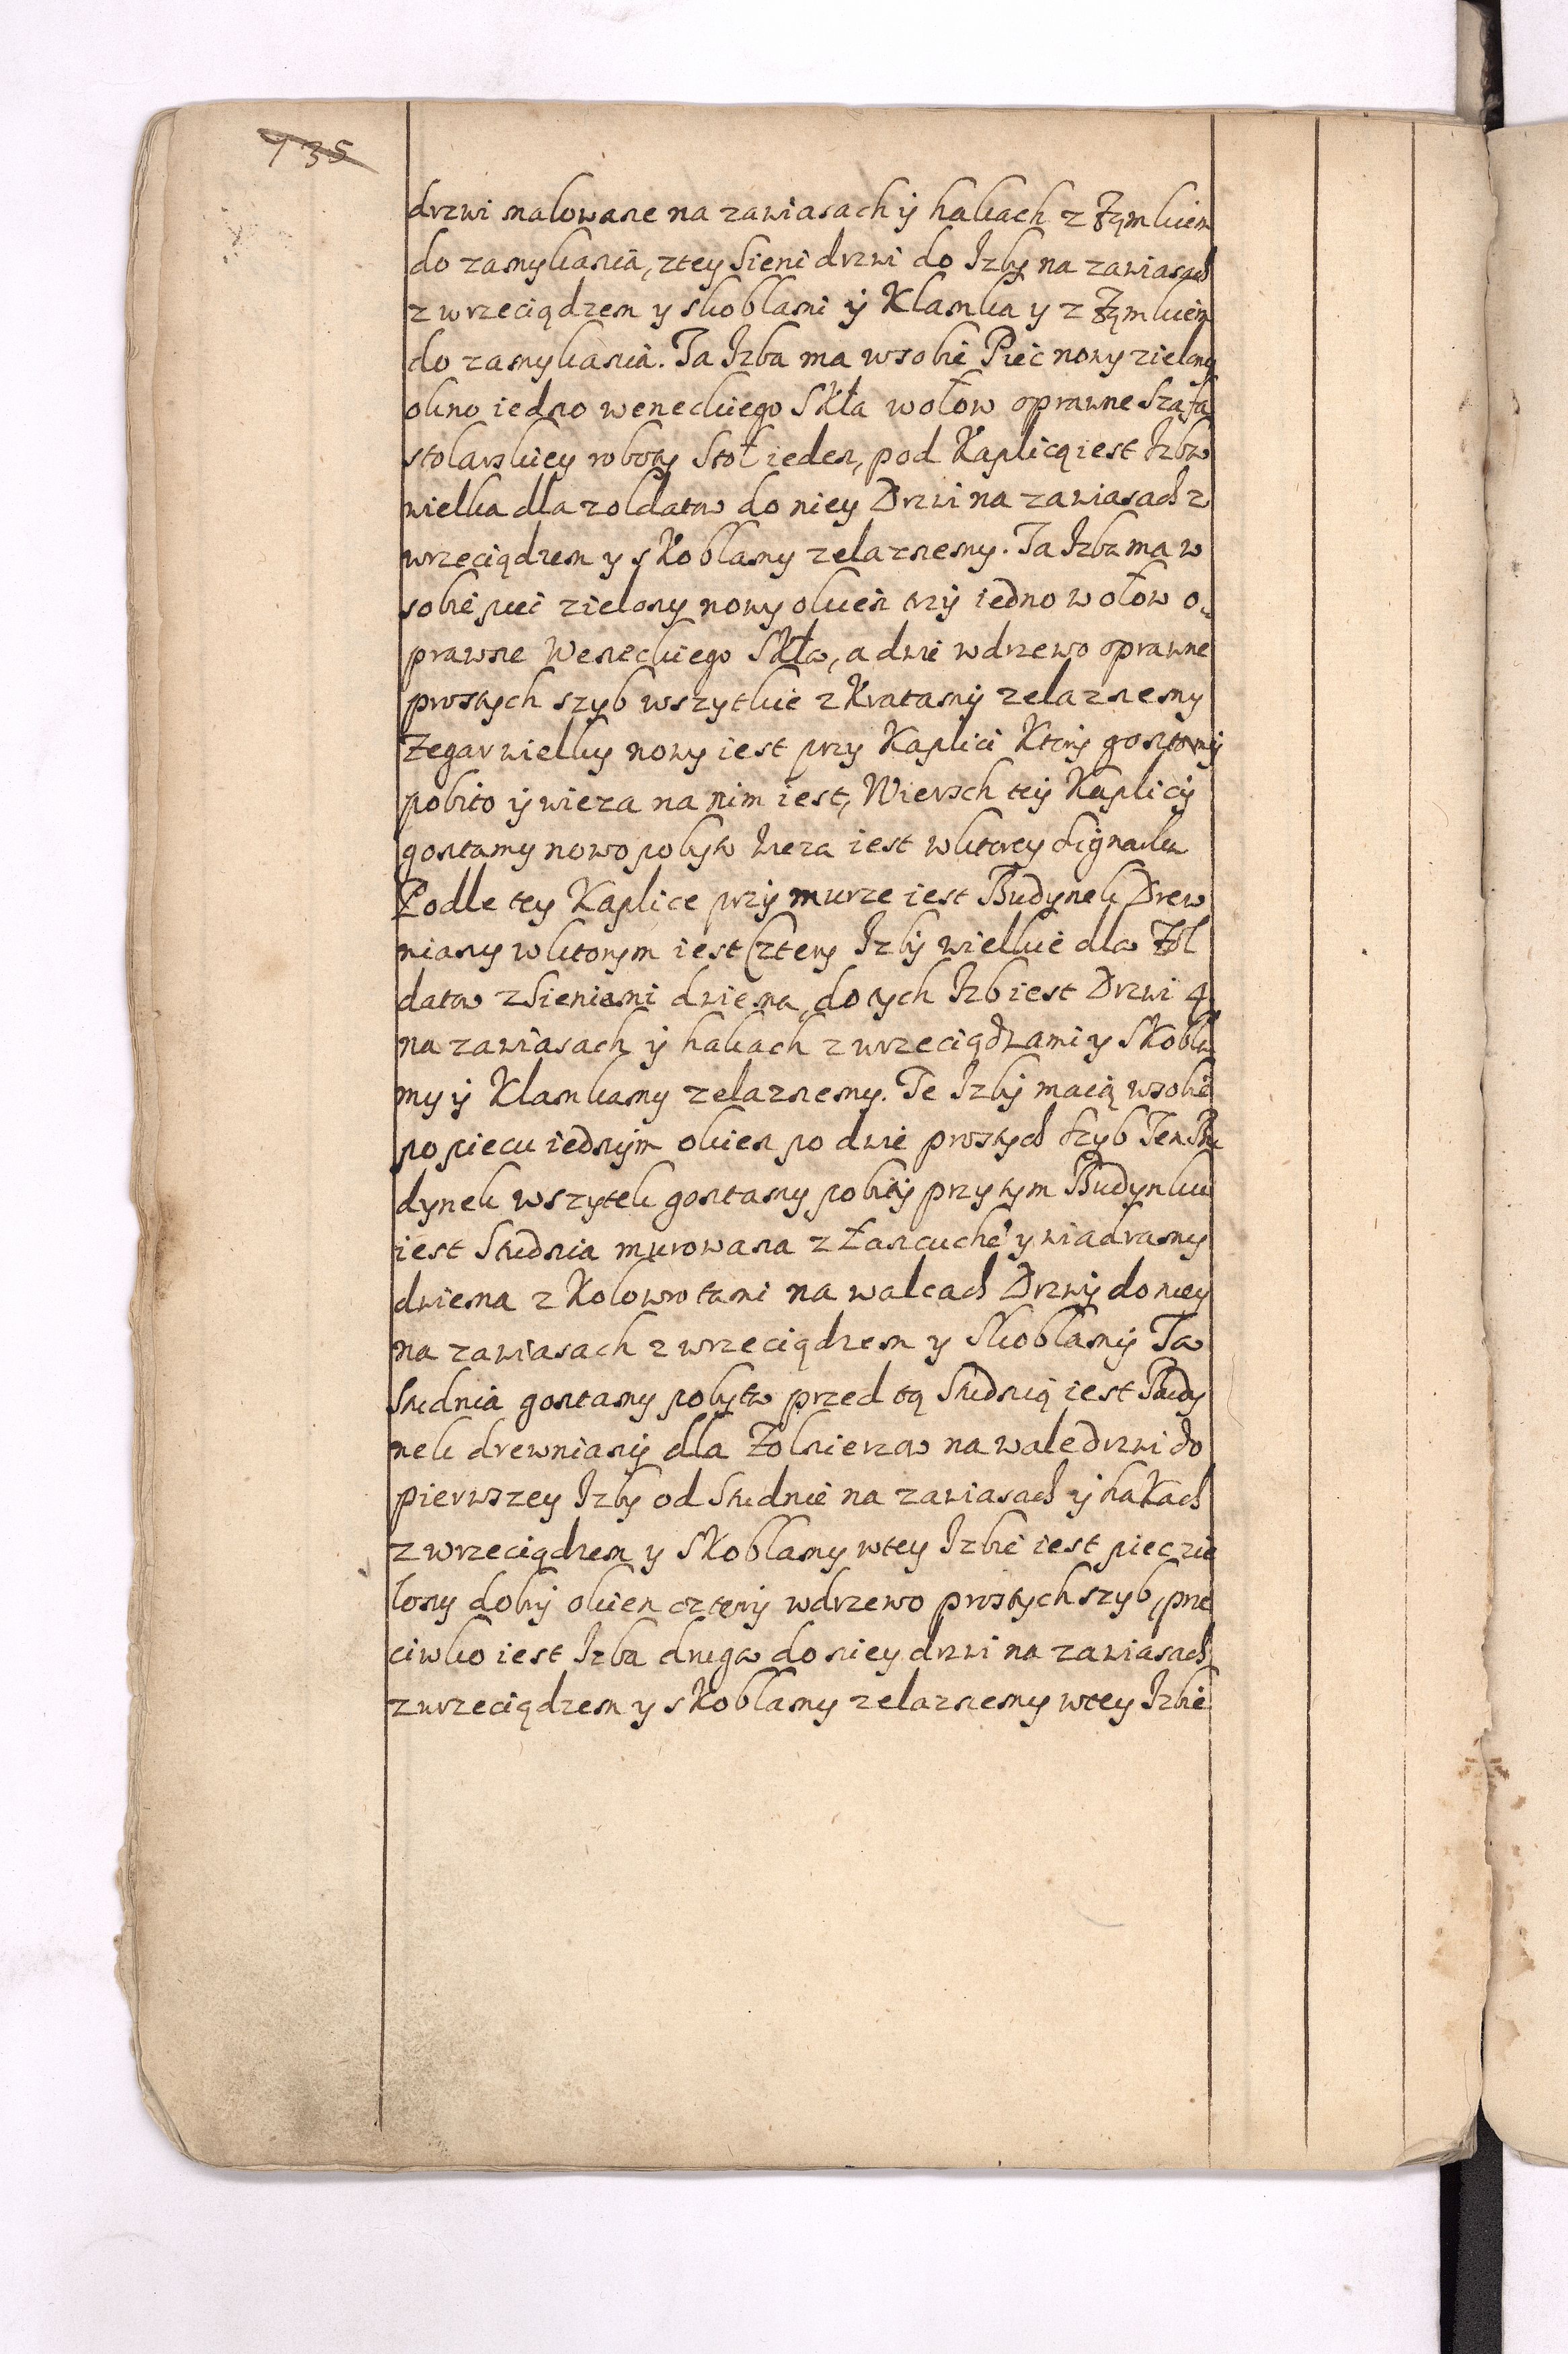 735
drzwi malowane na zawiasach ÿ hakach z Ząmkiem
do zamykania, ztey Sieni drzwi do Izby na zawiasach
z wrzeciądzem y skoblami ÿ Klamka y z Ząmkiem
do zamykania. Ta Izba ma wsobie Piec nowy zielony
okno iedno weneckiego Skła wołow oprawne Szafa
stolarskiey roboty Stoł ieden, pod Kaplicą iest Izba
wielka dla zoldatow do niey Drzwi na zawiasach z
wrzeciądzem y skoblamy zelaznemy. Ta Izba ma w
sobie piec zielony nowy okien trzÿ iedno wołow o„
prawne Weneckiego Skła, a dwie wdrzewo oprawne
prostych szyb wszytkie z Kratamÿ zelaznemy
Zegar wielky nowy iest przy Kaplici Ktorÿ gontamÿ
pobito ÿ wieza na nim iest, Wierzch teÿ Kaplicÿ
gontamy nowo pobyta Wieza iest wktorey Signarka
Podle tey Kaplice przÿ murze iest Budynek Drew
niany wktorym iest Cztery Izbÿ wielkie dla Zol
datow zSieniami dwiema, do tych Izb iest Drzwi 4
na zawiasach ÿ hakach z wrzeciądzami y Skobla
my ÿ Klamkamy zelaznemy. Te Izbÿ maią wsobie
po piecu iednÿm okien po dwie prostych Szyb Ten Bu
dynek wszytek gontamy pobitÿ przytym Budynku
iest Studnia murowana z Łancuchē y wiadramy
dwiema z Kolowrotami na walcach Drzwÿ do niey
na zawiasach z wrzeciądzem y Skoblamÿ Ta
Studnia gontamy pobyta przed tą Studnią iest Budy
nek drewnianÿ dla Zolnierzow na wale drzwi do
pierwszey Izby od Studnie na zawiasach ÿ hakach
z wrzeciądzem y Skoblamy wtey Izbie iest piec zie
lony dobrÿ okien czterÿ wdrzewo prostych szyb, prze
ciwko iest Izba druga do niey drzwi na zawiasach
z wrzeciądzem y skoblamy zelaznemy wtey Izbie